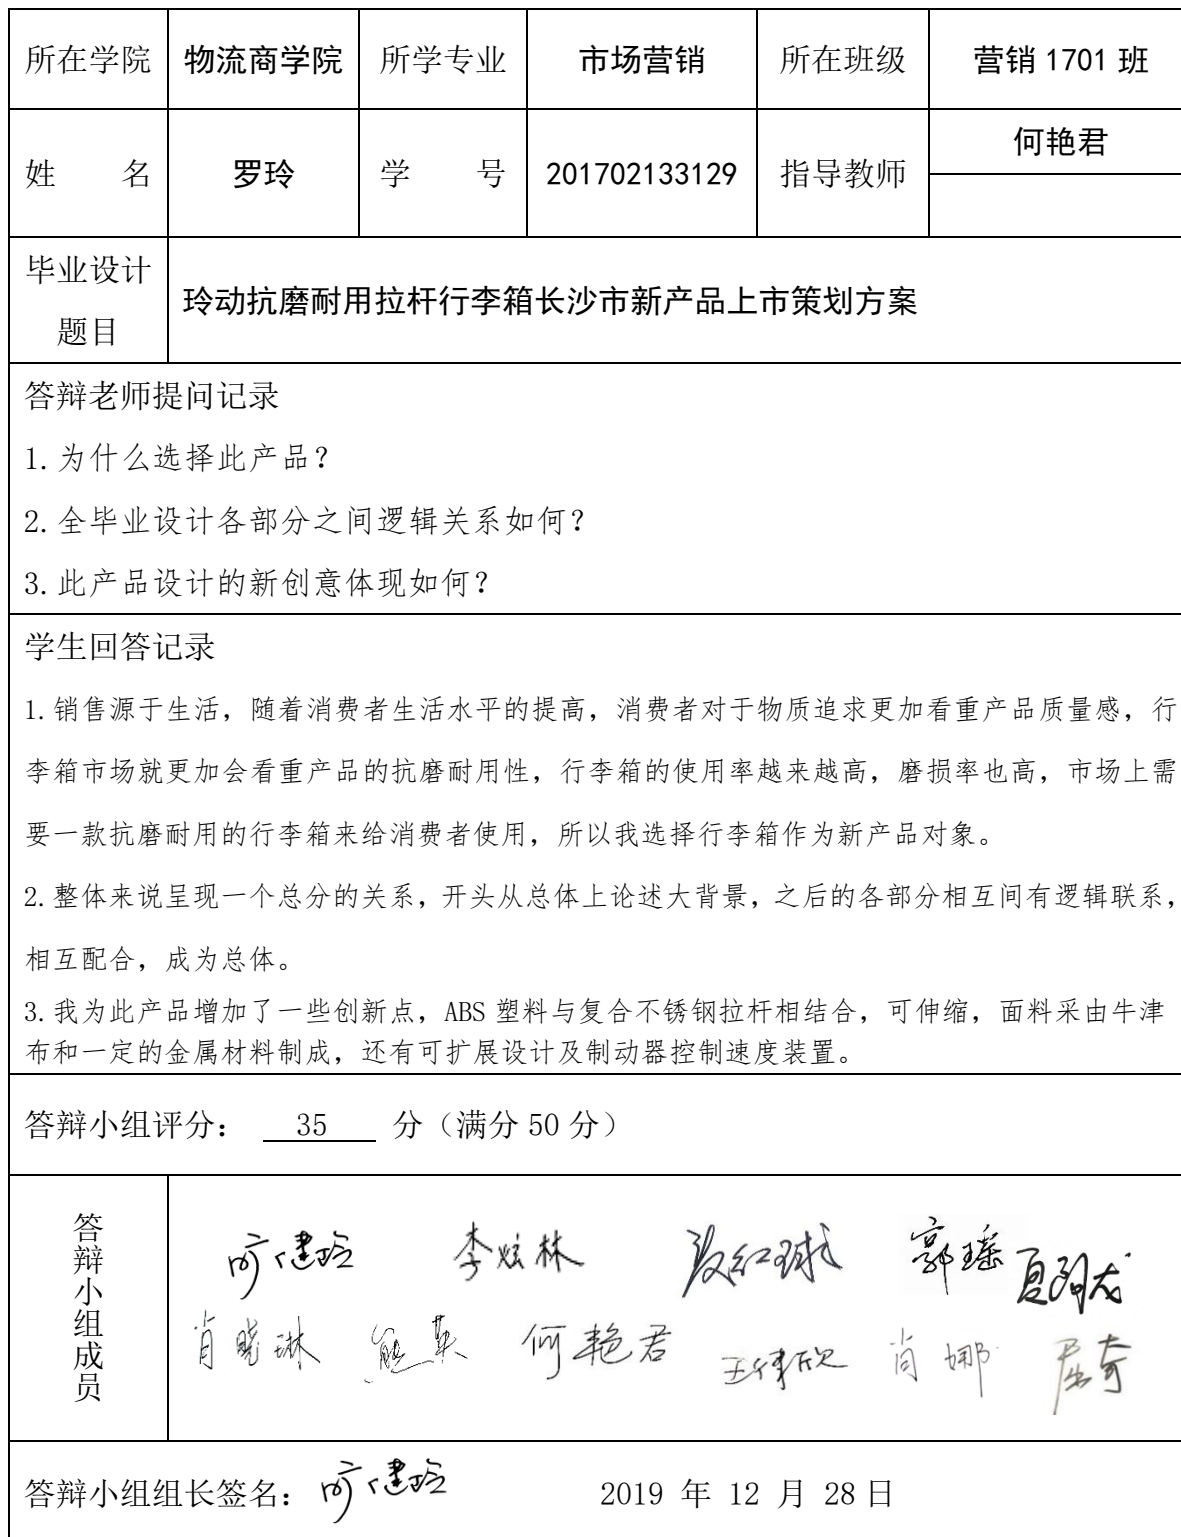 所在学院 物流商学院 所学专业 市场营销 所在班级 营销 1701 班
姓 名 罗玲 学 号 201702133129 指导教师 何艳君
毕业设计题目 玲动抗磨耐用拉杆行李箱长沙市新产品上市策划方案
答辩老师提问记录
1.为什么选择此产品？
2.全毕业设计各部分之间逻辑关系如何？
3.此产品设计的新创意体现如何？
学生回答记录
1.销售源于生活，随着消费者生活水平的提高，消费者对于物质追求更加看重产品质量感，行
李箱市场就更加会看重产品的抗磨耐用性，行李箱的使用率越来越高，磨损率也高，市场上需
要一款抗磨耐用的行李箱来给消费者使用，所以我选择行李箱作为新产品对象。
2.整体来说呈现一个总分的关系，开头从总体上论述大背景，之后的各部分相互间有逻辑联系，
相互配合，成为总体。
3.我为此产品增加了一些创新点，ABS 塑料与复合不锈钢拉杆相结合，可伸缩，面料采由牛津
布和一定的金属材料制成，还有可扩展设计及制动器控制速度装置。
答辩小组评分： 35 分（满分 50 分）
答辩小组成员
邝健玲 李炫林 段红球 郭瑶
肖晓琳 熊英 何艳君 肖娜 屈奇
答辩小组组长签名：邝健玲 2019 年 12 月 28 日